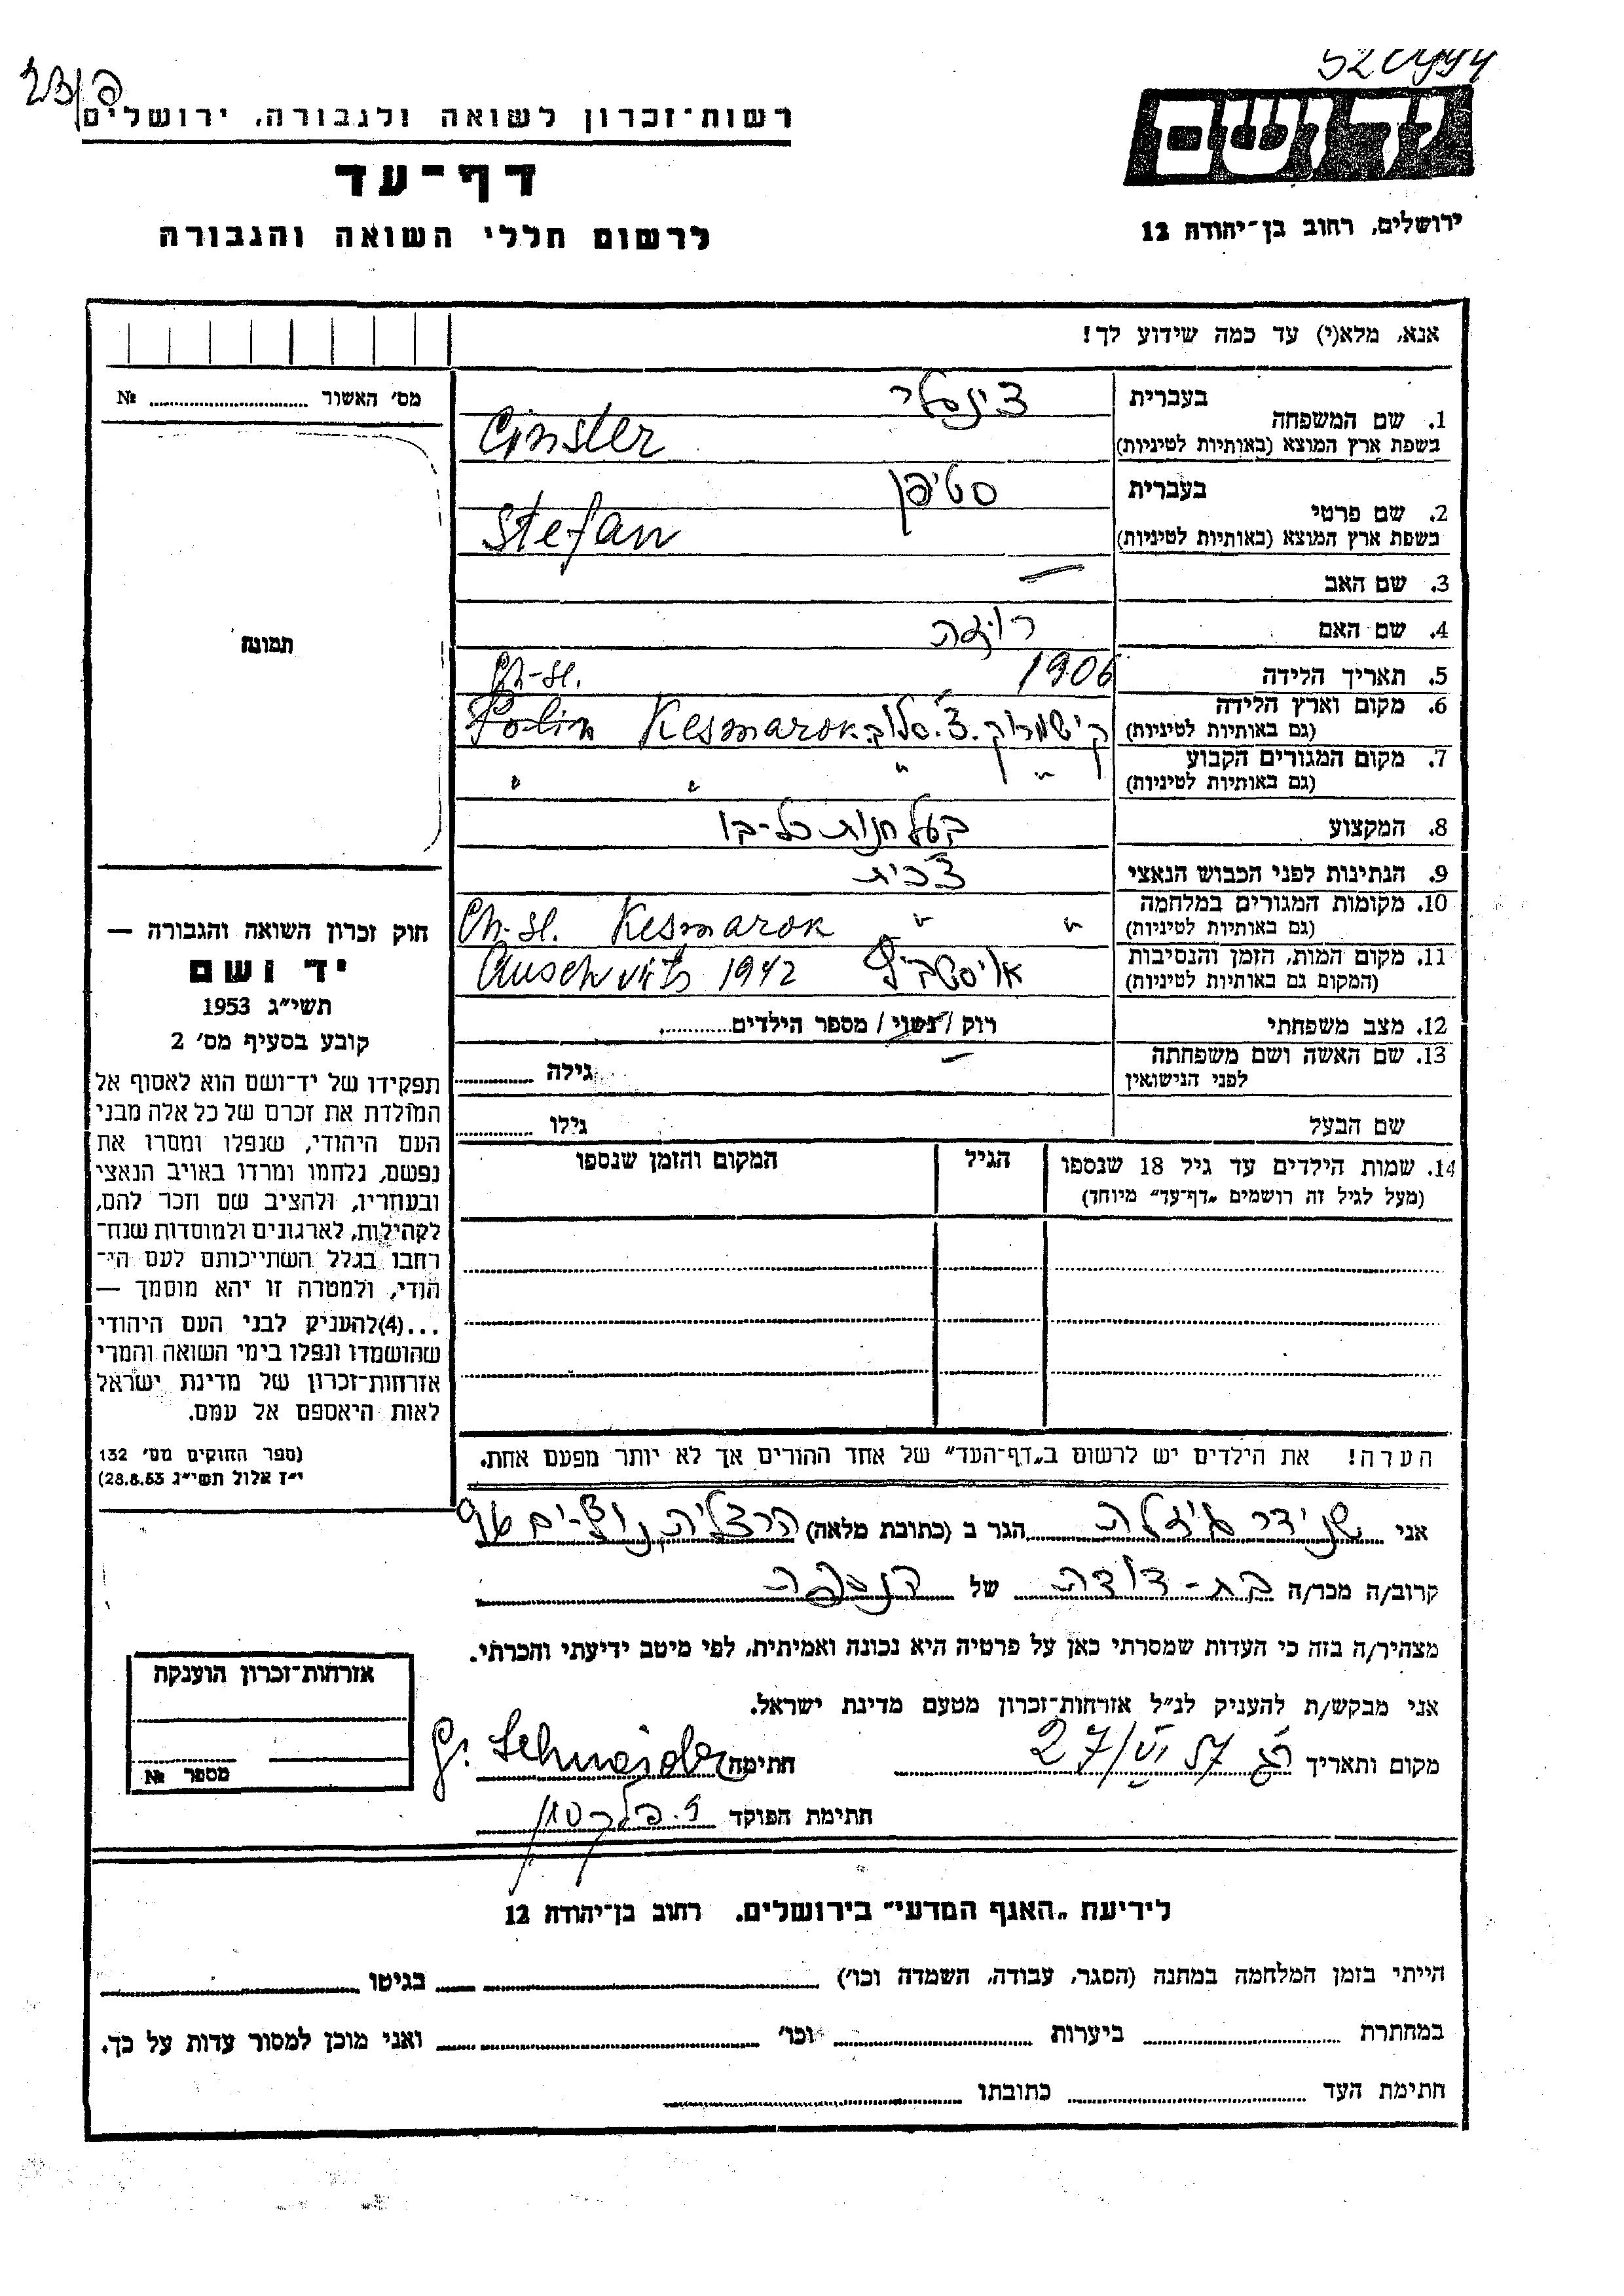 רשות־זכרון לשואה ולגבורה, ירושלים
דף־עד
לרשום חללי השואה והגבורה
יד ושם
ירושלים, רחוב בן־יהודה 12
אנא, מלא(י) עד כמה שידוע לך!
מס׳ האשור № 
תמונה
1. שם המשפחה
בעברית צינסלר
בשפת ארץ המוצא (באותיות לטיניות) Cinsler
2. שם פרטי
בעברית סטיפן
בשפת ארץ המוצא (באותיות לטיניות) Stefan
3. שם האב —
4. שם האם רוזה
5. תאריך הלידה 1906
Ch-sl.
6. מקום וארץ הלידה קישמרוק. צ'. סלוב. Kesmarok Polin
(גם באותיות לטיניות)
7. מקום המגורים הקבוע " " " "
(גם באותיות לטיניות)
8. המקצוע בעל חנות כל-בו
9. הנתינות לפני הכבוש הנאצי צ'כית
10. מקומות המגורים במלחמה " " Ch-sl. Kesmarok
(גם באותיות לטיניות)
11. מקום המות, הזמן והנסיבות Auschvits 1942
(המקום גם באותיות לטיניות)
12. מצב משפחתי רוק / נשוי / מספר הילדים
13. שם האשה ושם משפחתה — גילה
לפני הנישואין
שם הבעל גילו
14. שמות הילדים עד גיל 18 שנספו הגיל המקום והזמן שנספו
(מעל לגיל זה רושמים „דף־עד" מיוחד)
הערה! את הילדים יש לרשום ב„דף־העד" של אחד ההורים אך לא יותר מפעם אחת.
חוק זכרון השואה והגבורה —
יד ושם
תשי״ג 1953
קובע בסעיף מס׳ 2
תפקידו של יד־ושם הוא לאסוף אל
המולדת את זכרם של כל אלה מבני
העם היהודי, שנפלו ומסרו את
נפשם, נלחמו ומרדו באויב הנאצי
ובעוזריו, ולהציב שם וזכר להם,
לקהילות, לארגונים ולמוסדות שנח־
רחבו בגלל השתייכותם לעם הי־
הודי, ולמטרה זו יהא מוסמך —
...(4) להעניק לבני העם היהודי
שהושמדו ונפלו בימי השואה והמרי
אזרחות־זכרון של מדינת ישראל
לאות היאספם אל עמם.
(ספר החוקים מס׳ 132
י״ז אלול תשי״ג 28.8.53)
אני שניידר גיזלה הגר ב (כתובת מלאה) הרצליה
קרוב/ה מכר/ה בת-דודה של הנספה
מצהיר/ה בזה כי העדות שמסרתי כאן על פרטיה היא נכונה ואמיתית, לפי מיטב ידיעתי והכרתי.
אני מבקש/ת להעניק לנ״ל אזרחות־זכרון מטעם מדינת ישראל.
מקום ותאריך 27/VI 57 חתימה G. Schneider
חתימת הפוקד
אזרחות־זכרון הוענקה
מספר №
לידיעת „האגף המדעי" בירושלים. רחוב בן־יהודה 12
הייתי בזמן המלחמה במחנה (הסגר, עבודה, השמדה וכו׳) בגיטו
במחתרת ביערות וכו׳ ואני מוכן למסור עדות על כך.
חתימת העד כתובתו